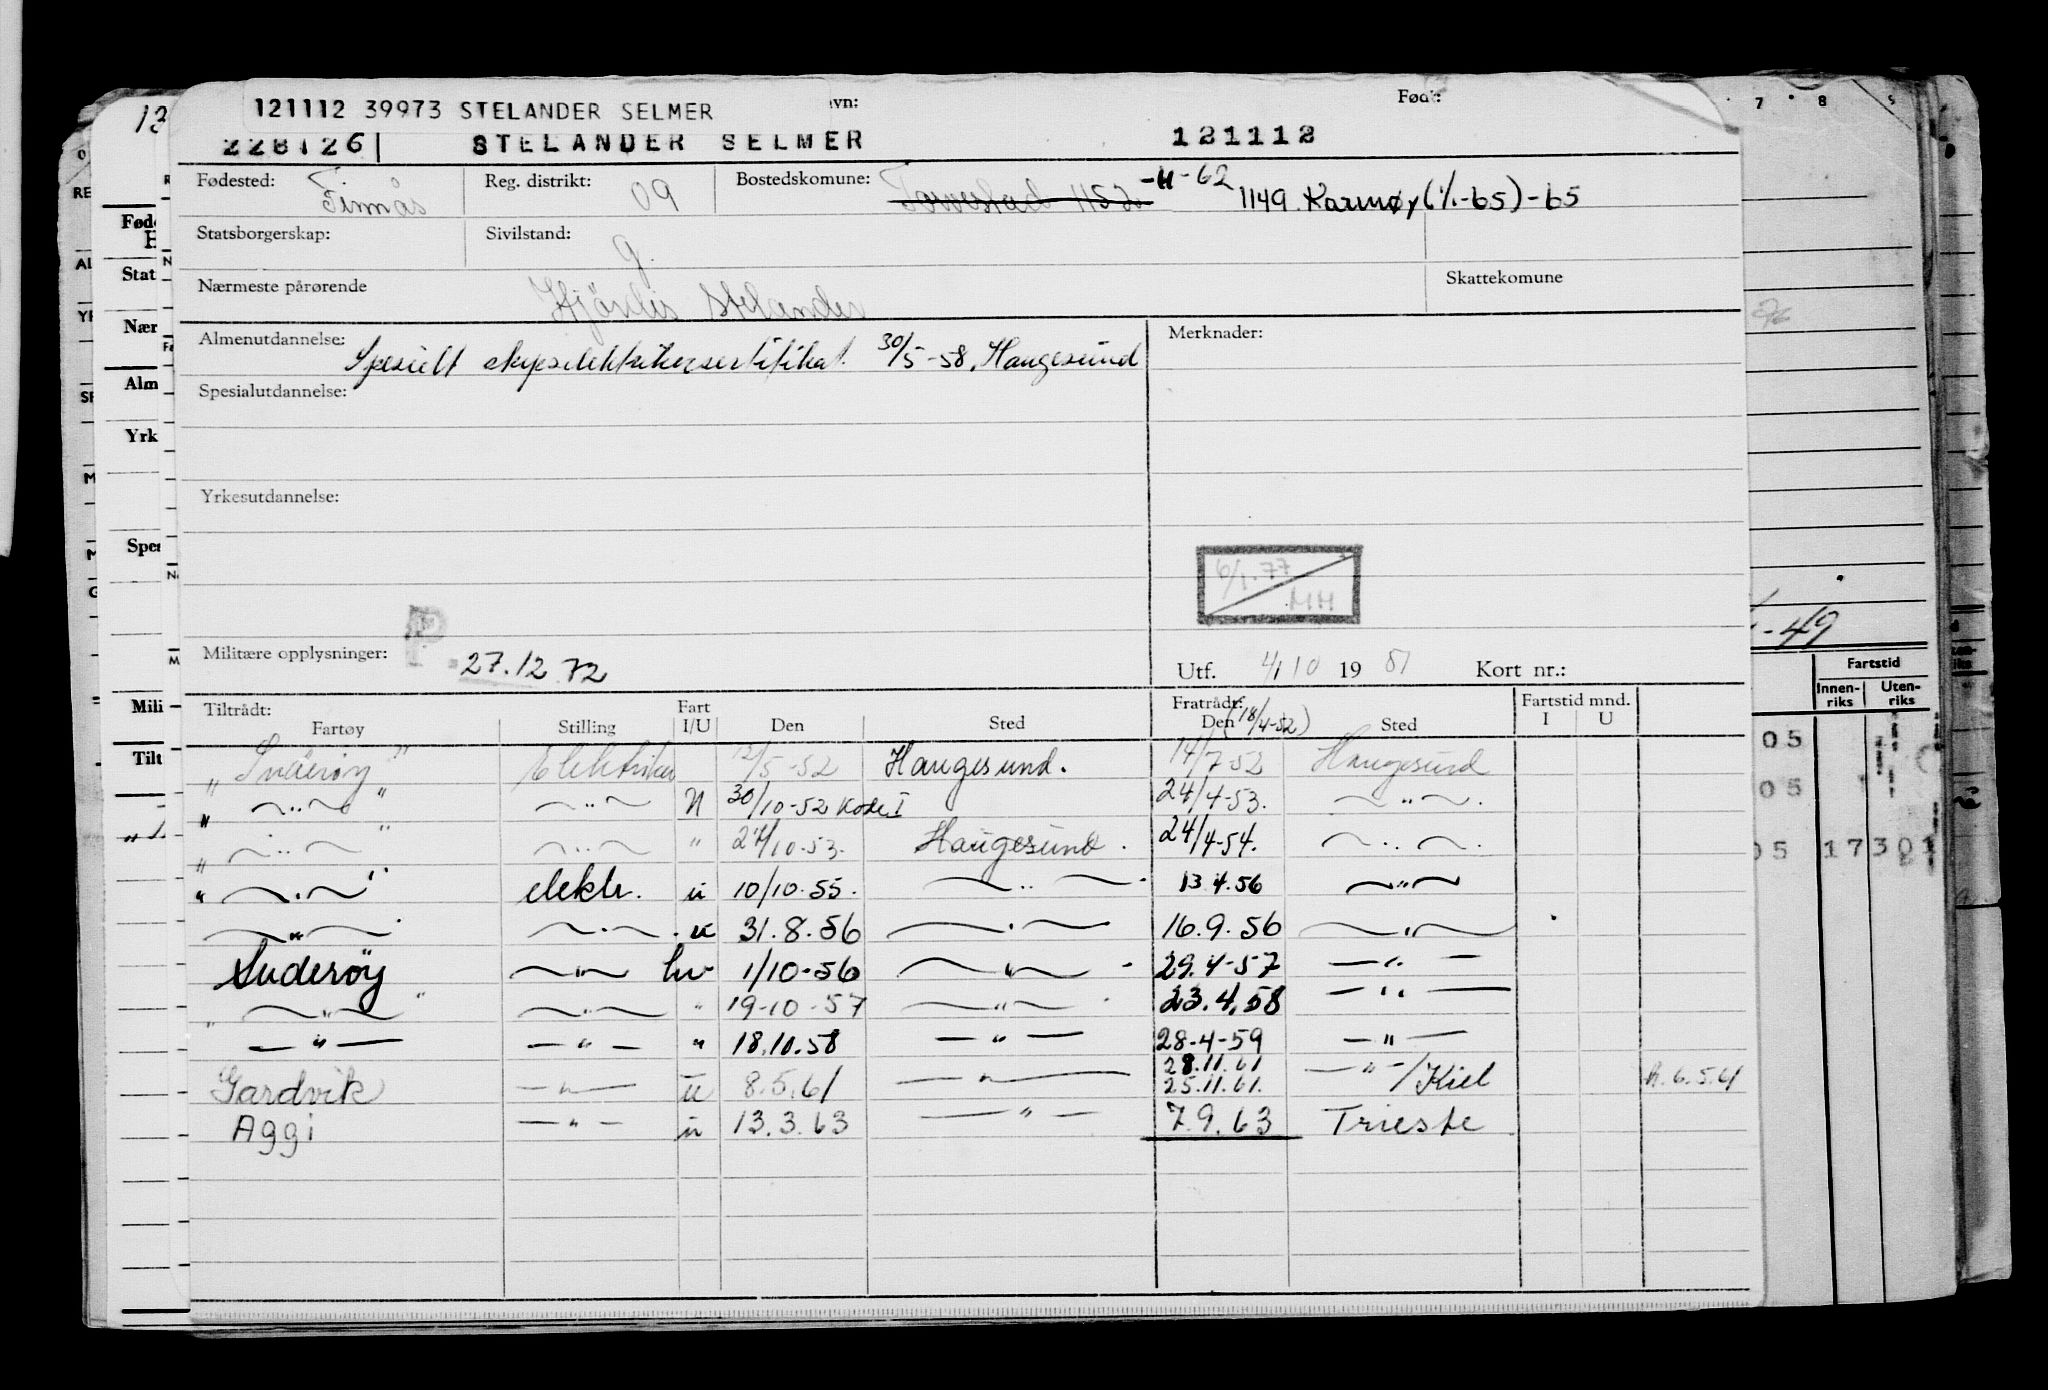 121112 39973 STELANDER SELMER
vn:
Født:
228126| STELANDER SELMER 121112
Fødested: Finnås
Reg. distrikt: 09
Bostedskomune: Torvestad 1152 -11-62 1149 Karmøy (1/1-65)-65
Statsborgerskap:
Sivilstand: g.
Nærmeste pårørende Hjördis Stelander
Skattekomune
Almenutdannelse: Spesielt skipselektrikersertifikat. 30/5-58, Haugesund
Merknader:
Spesialutdannelse:
Yrkesutdannelse:
6/1.77
MH
Militære opplysninger: P 27.12.72
Utf. 4/10 1951 Kort nr.:
Tiltrådt:
Fratrådt: (18/4-52)
Fartstid mnd.
Fartøy Stilling Fart I/U Den Sted Den Sted I U
„ Suderøy " Elektriker 12/5-52 Haugesund. 14/7-52 Haugesund
„ —"— " —"— U 30/10-52 Kode I 24/4-53. —"—.
„ —"— " —"— " 24/10-53. Haugesund. 24/4-54. —"—.
„ —"— " elektr. u 10/10-55. —"— 13.4.56 —"—
—"— —"— u 31.8.56 —"— 16.9.56 —"—
Suderøy —"— hv 1/10-56 —"— 29.4-57 —"—
„ —"— " —"— " 19-10-57 —"— 23.4.58 —"—
—"— —"— " 18.10.58 —"— 28-4-59 —"—
28.11.61
Gardvik —"— u 8.5.61 —"— 25.11.61. —"—/Kiel R.6.5.61
Aggi —"— u 13.3.63 —"— 7.9.63 Trieste
13
Stat
Nær
Alm
Yrk
Spes
Mili
Tilt
7 8
-49
Fartstid
Innen-riks Uten-riks
05
05
05 17301